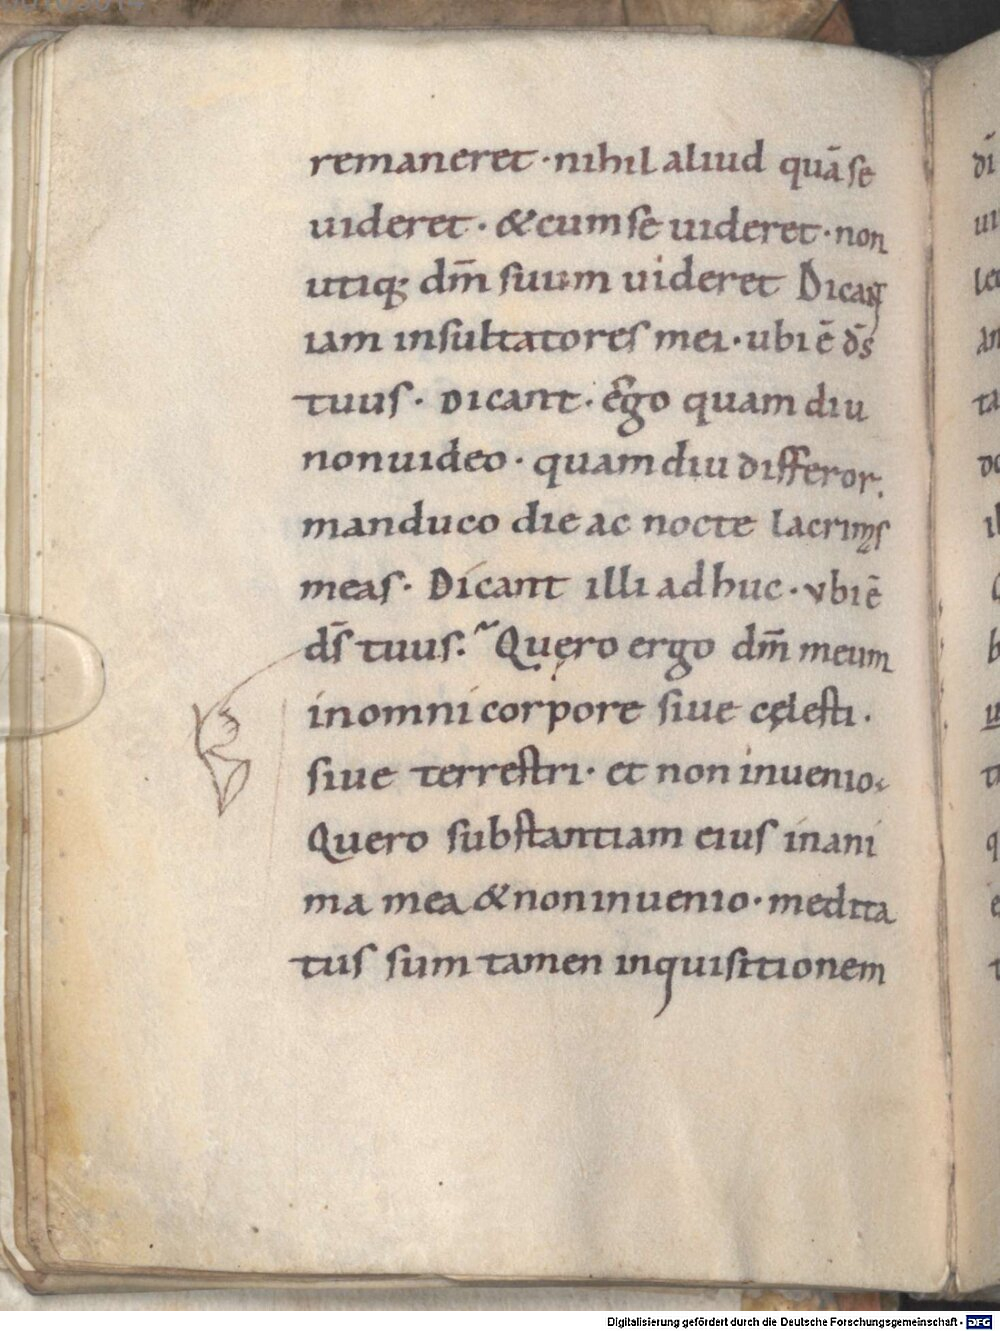 remaneret · nihil aliud quā se
uideret · & cum se uideret · non
utiq; dm̄ suum uideret Dicant
iam insultatores mei · ubi ē ds̄
tuus · Dicant · ego quam diu
non uideo · quam diu differor.
manduco die ac nocte lacrimas
meas · Dicant illi ad huc · vbi ē
ds̄ tuus. Quęro ergo dm̄ meum
in omni corpore siue cęlesti ·
siue terrestri · et non inuenio.
Quero substantiam eius in ani
ma mea & non inuenio · medita
tus sum tamen inquisitionem
Digitalisierung gefördert durch die Deutsche Forschungsgemeinschaft - DFG